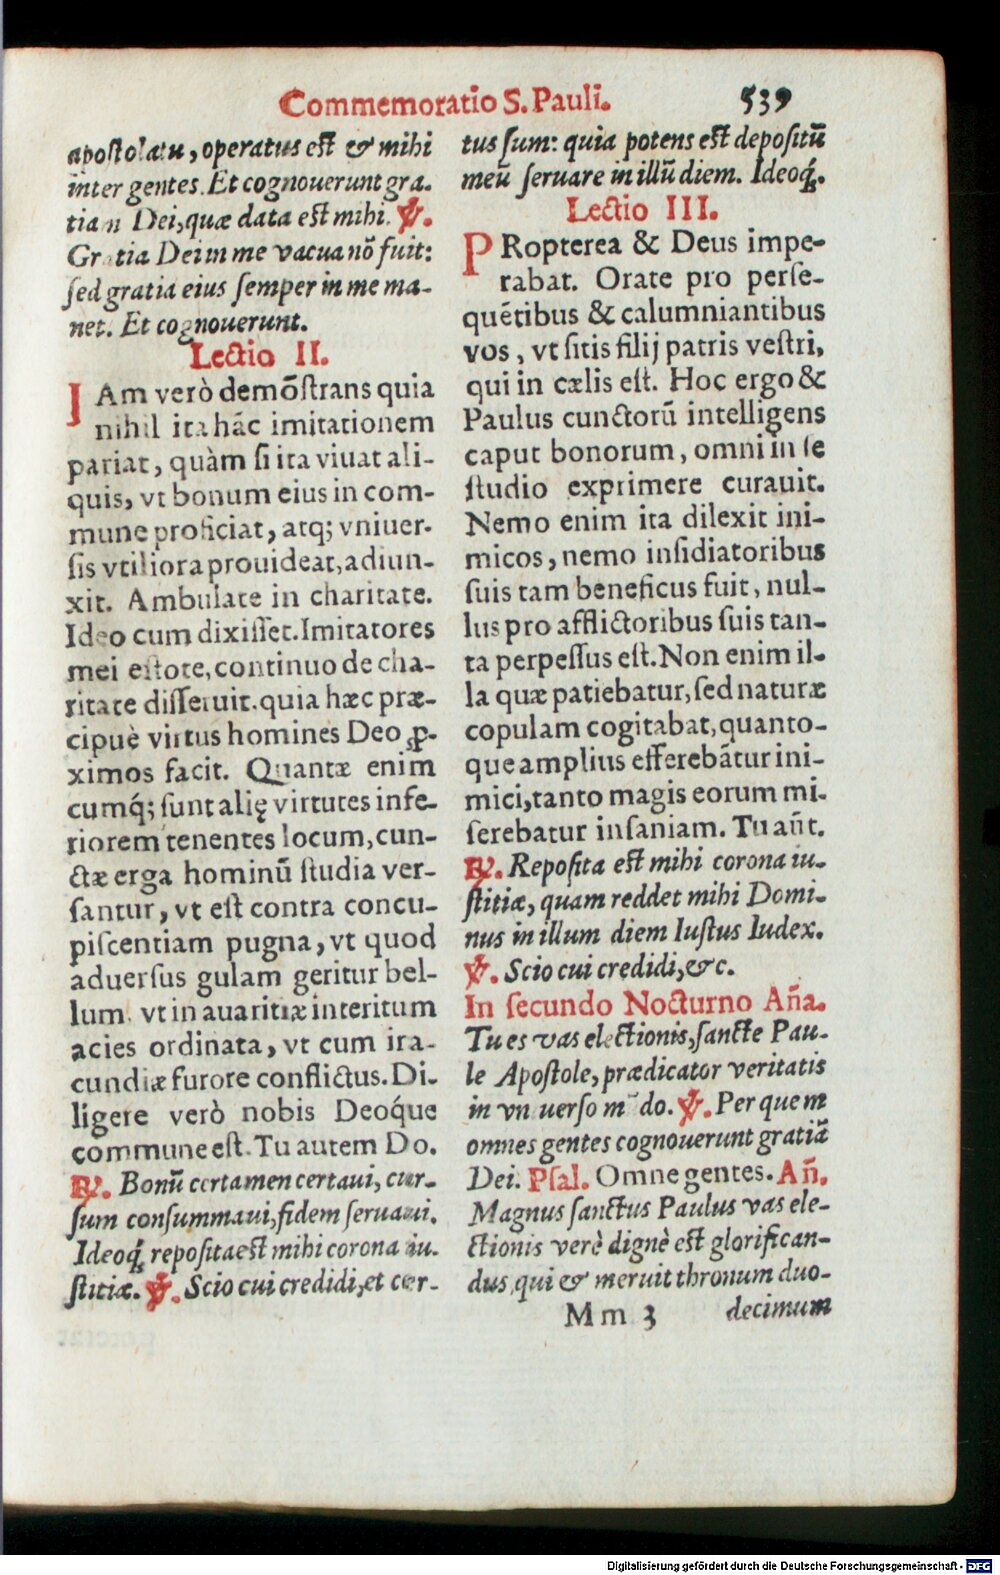 Commemoratio S. Pauli. 539
apostolatu, operatus est & mihi
inter gentes. Et cognouerunt gra-
tiam Dei, quæ data est mihi. ℣.
Gratia Dei in me vacua nõ fuit:
sed gratia eius semper in me ma-
net. Et cognouerunt.
Lectio II.
IAm verò demõstrans quia
nihil ita hãc imitationem
pariat, quàm si ita viuat ali-
quis, vt bonum eius in com-
mune proficiat, atq; vniuer-
sis vtiliora prouideat, adiun-
xit. Ambulate in charitate.
Ideo cum dixisset. Imitatores
mei estote, continuo de cha-
ritate disseruit. quia hæc præ-
cipuè virtus homines Deo ꝓ-
ximos facit. Quantæ enim
cumq́; sunt alię virtutes infe-
riorem tenentes locum, cun-
ctæ erga hominũ studia ver-
santur, vt est contra concu-
piscentiam pugna, vt quod
aduersus gulam geritur bel-
lum. vt in auaritiæ interitum
acies ordinata, vt cum ira-
cundiæ furore conflictus. Di-
ligere verò nobis Deoq́ue
commune est. Tu autem Do.
℟. Bonũ certamen certaui, cur-
sum consummaui, fidem seruaui.
Ideoq́ reposita est mihi corona iu-
stitiæ. ℣. Scio cui credidi, et cer-
tus sum: quia potens est depositũ
meũ seruare in illũ diem. Ideoq́.
Lectio III.
PRopterea & Deus impe-
rabat. Orate pro perse-
quẽtibus & calumniantibus
vos, vt sitis filij patris vestri,
qui in cælis est. Hoc ergo &
Paulus cunctorũ intelligens
caput bonorum, omni in se
studio exprimere curauit.
Nemo enim ita dilexit ini-
micos, nemo insidiatoribus
suis tam beneficus fuit, nul-
lus pro afflictoribus suis tan-
ta perpessus est. Non enim il-
la quæ patiebatur, sed naturæ
copulam cogitabat, quanto-
que amplius efferebãtur ini-
mici, tanto magis eorum mi-
serebatur insaniam. Tu aũt.
℟. Reposita est mihi corona iu-
stitiæ, quam reddet mihi Domi-
nus in illum diem Iustus Iudex.
℣. Scio cui credidi, &c.
In secundo Nocturno Añа.
Tu es vas electionis, sancte Pau-
le Apostole, prædicator veritatis
in vn uerso m̃ do. ℣. Per quem
omnes gentes cognouerunt gratiã
Dei. Psal. Omne gentes. Añ.
Magnus sanctus Paulus vas ele-
ctionis verè dignè est glorifican-
dus, qui & meruit thronum duo-
Mm 3 decimum
Digitalisierung gefördert durch die Deutsche Forschungsgemeinschaft - DFG